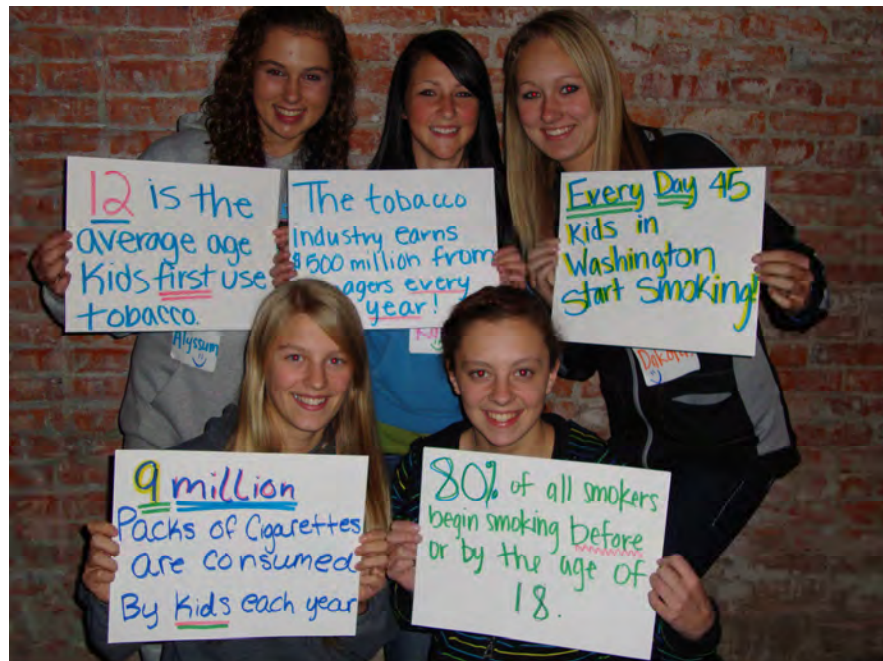 12 is the
average age
Kids first use
tobacco.
The tobacco
industry earns
$500 million from
every
year!
Every Day 45
Kids in
Washington
Start Smoking!
Alyssum
9 million
Packs of Cigarettes
are consumed
By Kids each year
80% of all smokers
begin smoking before
or by the age of
18.